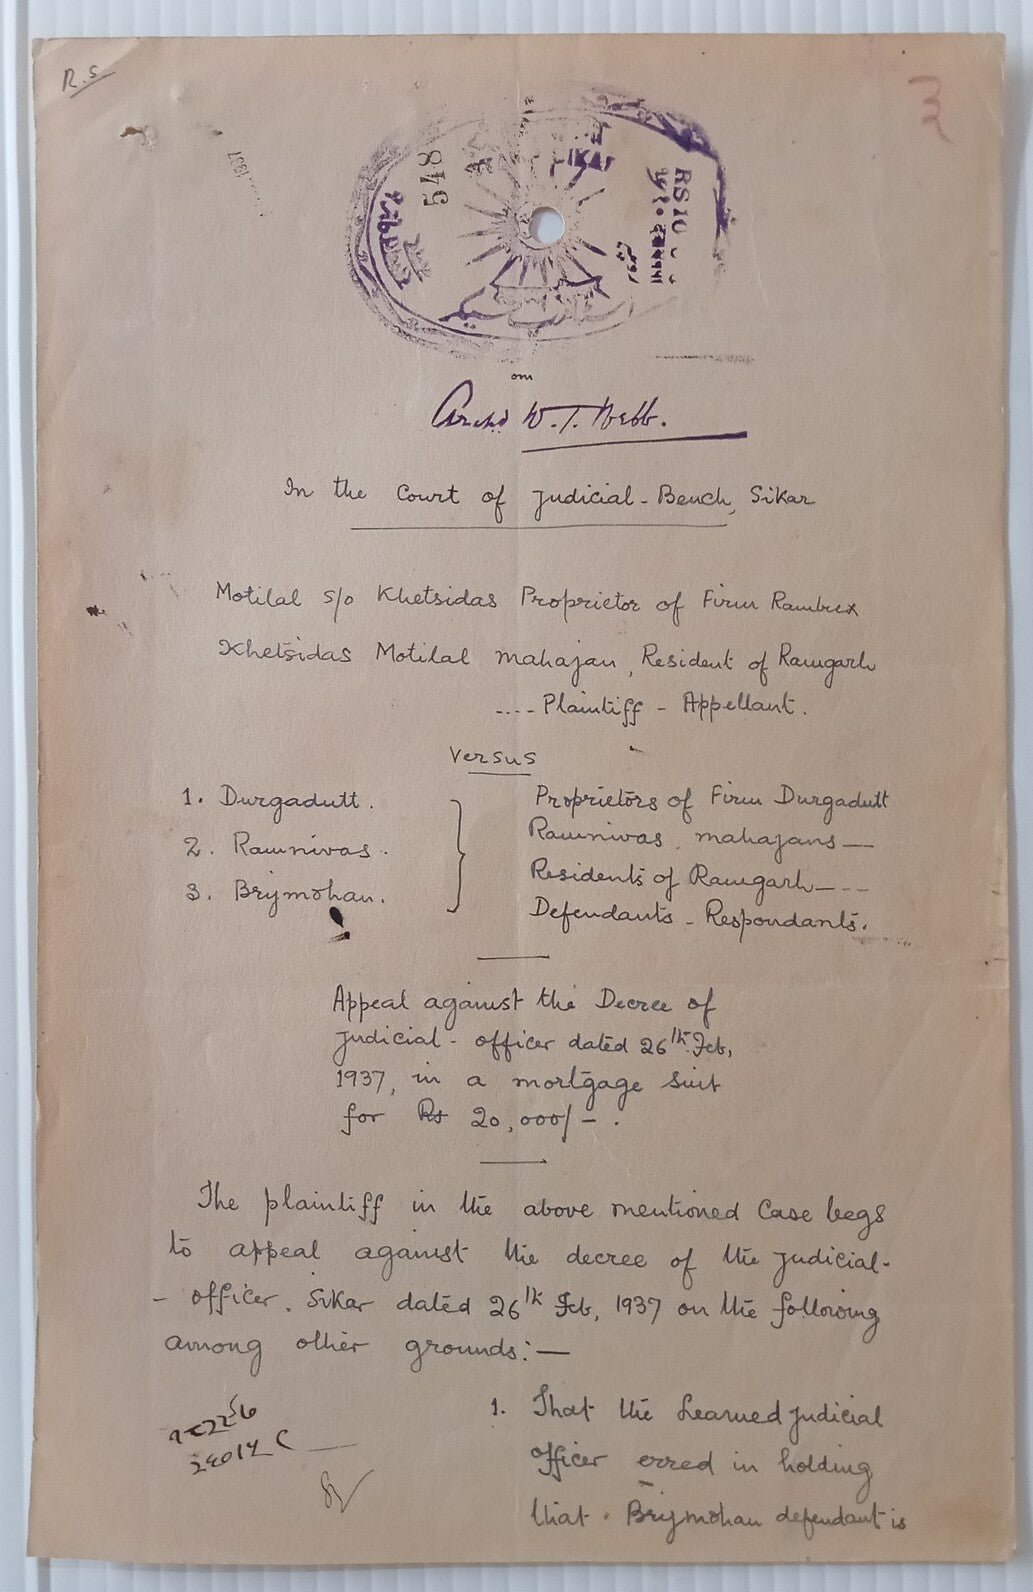 R.S
548
SIKAR
RS 10
W. T. Webb.
In the Court of Judicial-Bench, Sikar
Motilal s/o Khetsidas Proprietor of Firm Rambux
Khetsidas Motilal mahajan, Resident of Ramgarh
.... Plaintiff - Appellant.
Versus
1. Durgadutt.
2. Ramnivas.
3. Brijmohan.
Proprietors of Firm Durgadutt
Ramnivas, mahajans —
Residents of Ramgarh — - -
Defendants - Respondants.
Appeal against the Decree of
Judicial - officer dated 26th Feb,
1937, in a mortgage suit
for Rs 20,000/- .
The plaintiff in the above mentioned Case begs
to appeal against the decree of the Judicial-
- officer, Sikar dated 26th Feb, 1937 on the following
among other grounds:—
1. That the Learned Judicial
officer erred in holding
that Brijmohan defendant is